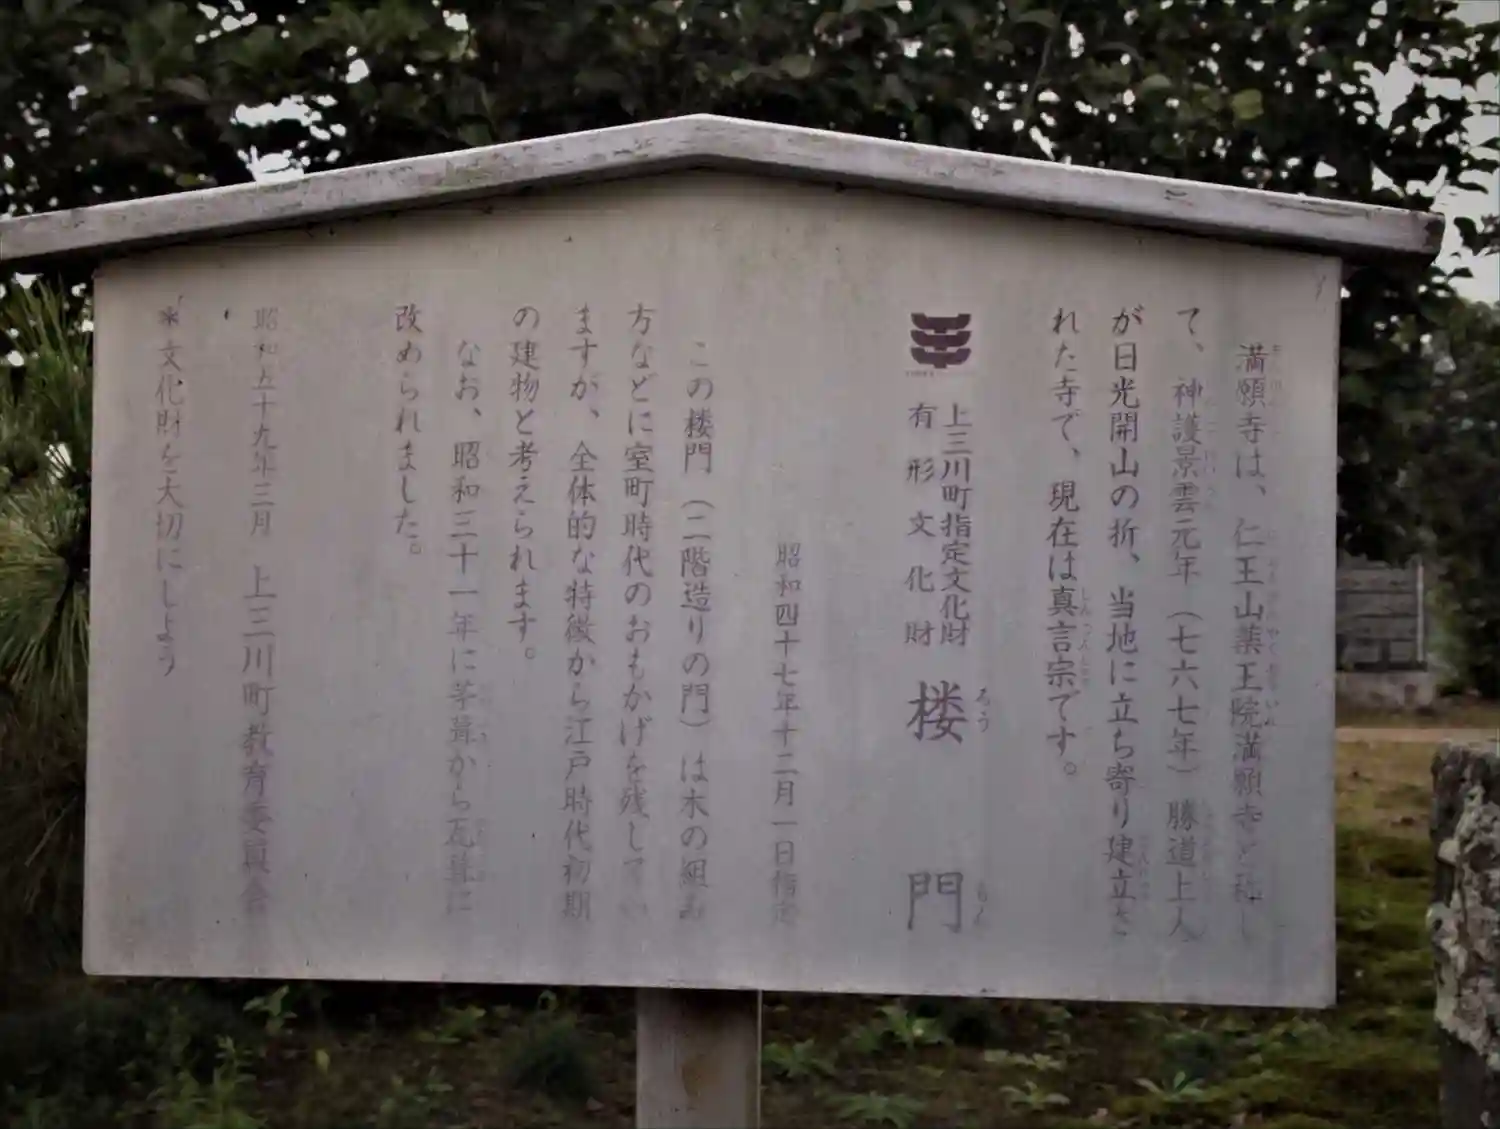 満願寺は、仁王山薬王院満願寺と称し
て、神護景雲元年（七六七年）勝道上人
が日光開山の折、当地に立ち寄り建立さ
れた寺で、現在は真言宗です。
上三川町指定文化財
有形文化財
楼門
ろうもん
昭和四十七年十二月一日指定
この楼門（二階造りの門）は木の組み
方などに室町時代のおもかげを残してい
ますが、全体的な特徴から江戸時代初期
の建物と考えられます。
なお、昭和三十一年に茅葺から瓦葺に
改められました。
昭和五十九年三月　上三川町教育委員会
＊文化財を大切にしよう